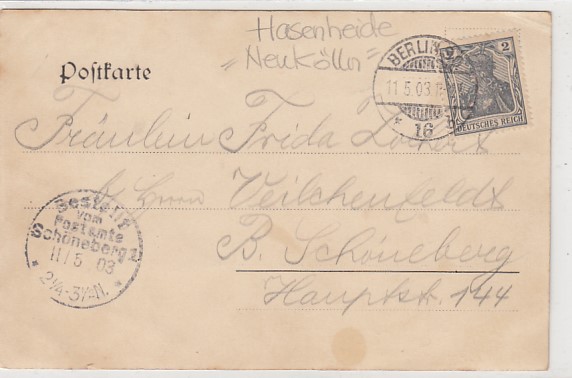 Hasenheide
"Neukölln"
Postkarte
BERLIN
11.5.03
* 16
2
DEUTSCHES REICH
Fräulein Frida
b/ Herrn Veilchenfeldt
B. Schöneberg
Hauptstr. 144
Bestellt
vom
Postamte
Schöneberg 1
11/5 03
2¼-3½N.